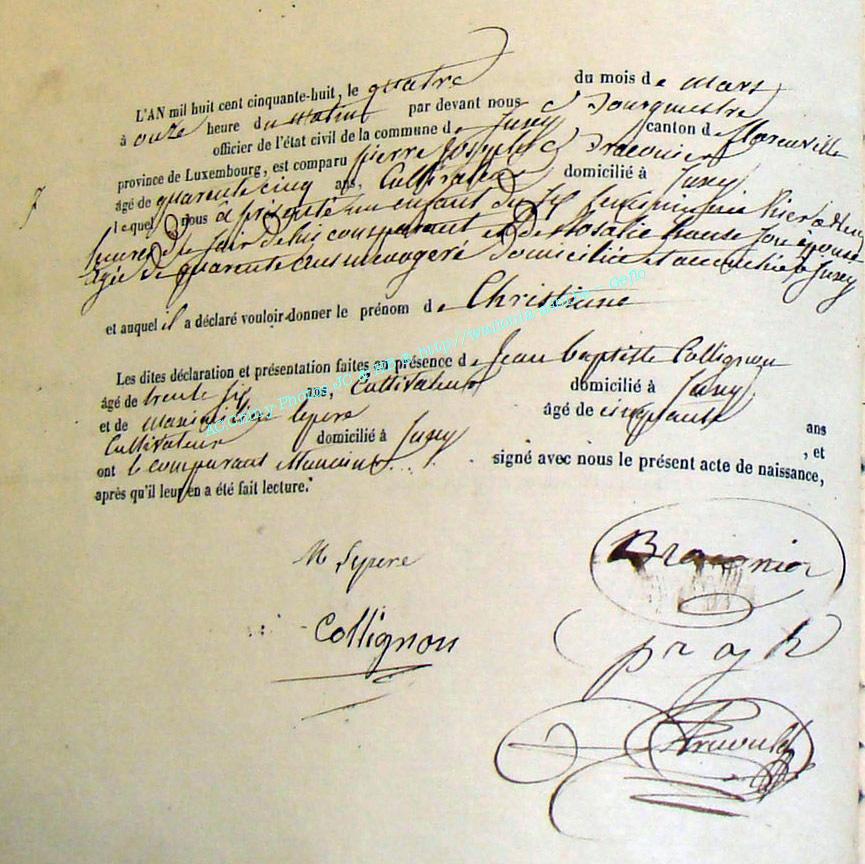 L'AN mil huit cent cinquante-huit, le quatre du mois de mars
à onze heure du matin par devant nous
officier de l'état civil de la commune de Jusey canton de florenville
province de Luxembourg, est comparu pierre Joseph
âgé de quarante cinq ans, Cultivateur domicilié à Jusey
lequel nous à présenté un enfant du féminin hier à
heures du soir de lui comparant et de Rosalie son épouse
âgée de quarante ans menagere domiciliée et accouchée à Jusey
et auquel il a déclaré vouloir donner le prénom de Christiane
Les dites déclaration et présentation faites en présence de Jean baptiste Collignon
âgé de trente six ans, Cultivateur domicilié à Jusey
et de lepere âgé de cinquante ans
Cultivateur domicilié à Jusey , et
ont le comparant signé avec nous le présent acte de naissance,
après qu'il leur en a été fait lecture.
M Lepere
Collignon